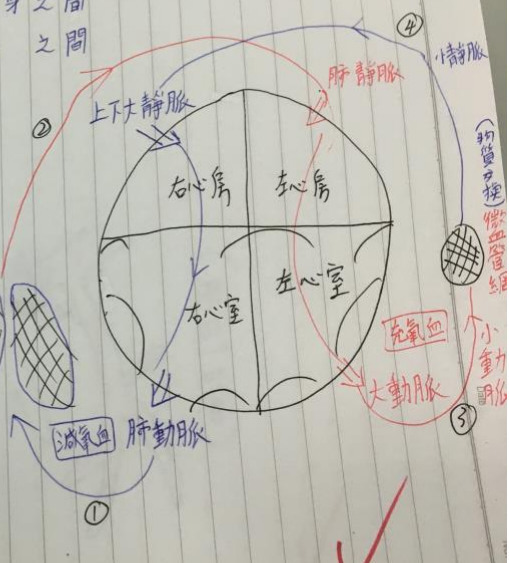 之間
之間
④
小靜脈
肺靜脈
②
上下大靜脈
(物質交換)
微血管網
右心房
左心房
右心室
左心室
充氧血
小動脈
大動脈
③
減氧血
肺動脈
①